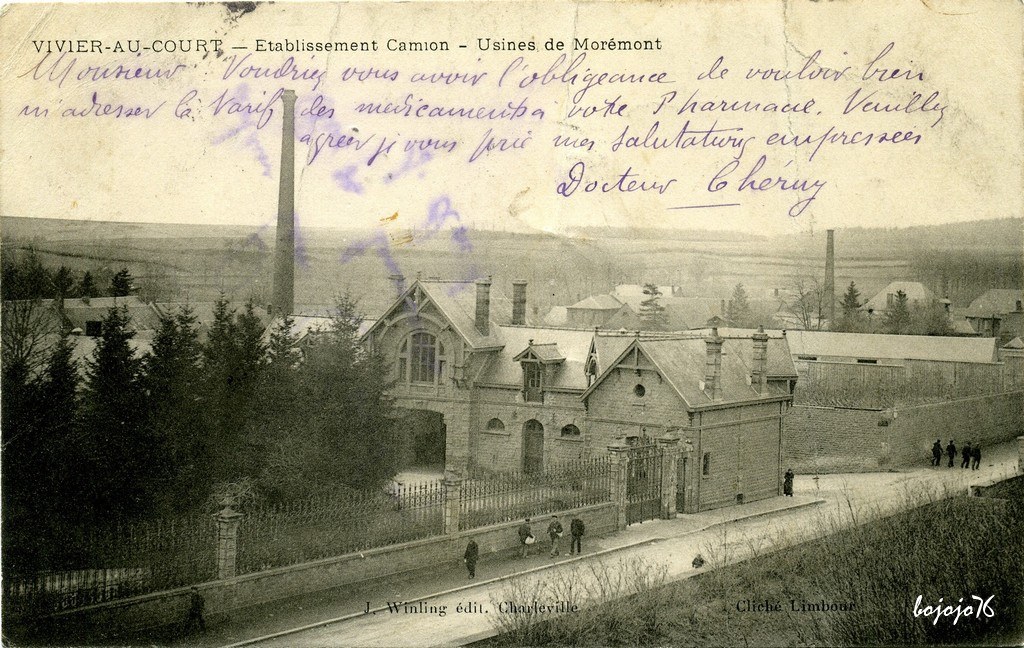 VIVIER-AU-COURT — Etablissement Camion - Usines de Morémont
Monsieur Voudriez vous avoir l'obligeance de vouloir bien
m'adresser le Tarif des medicaments a votre Pharmacie. Veuillez
agréer je vous prie mes salutations empressées
Docteur Chéruy
J. Winling édit. Charleville
Cliché Limbour
bojojo76